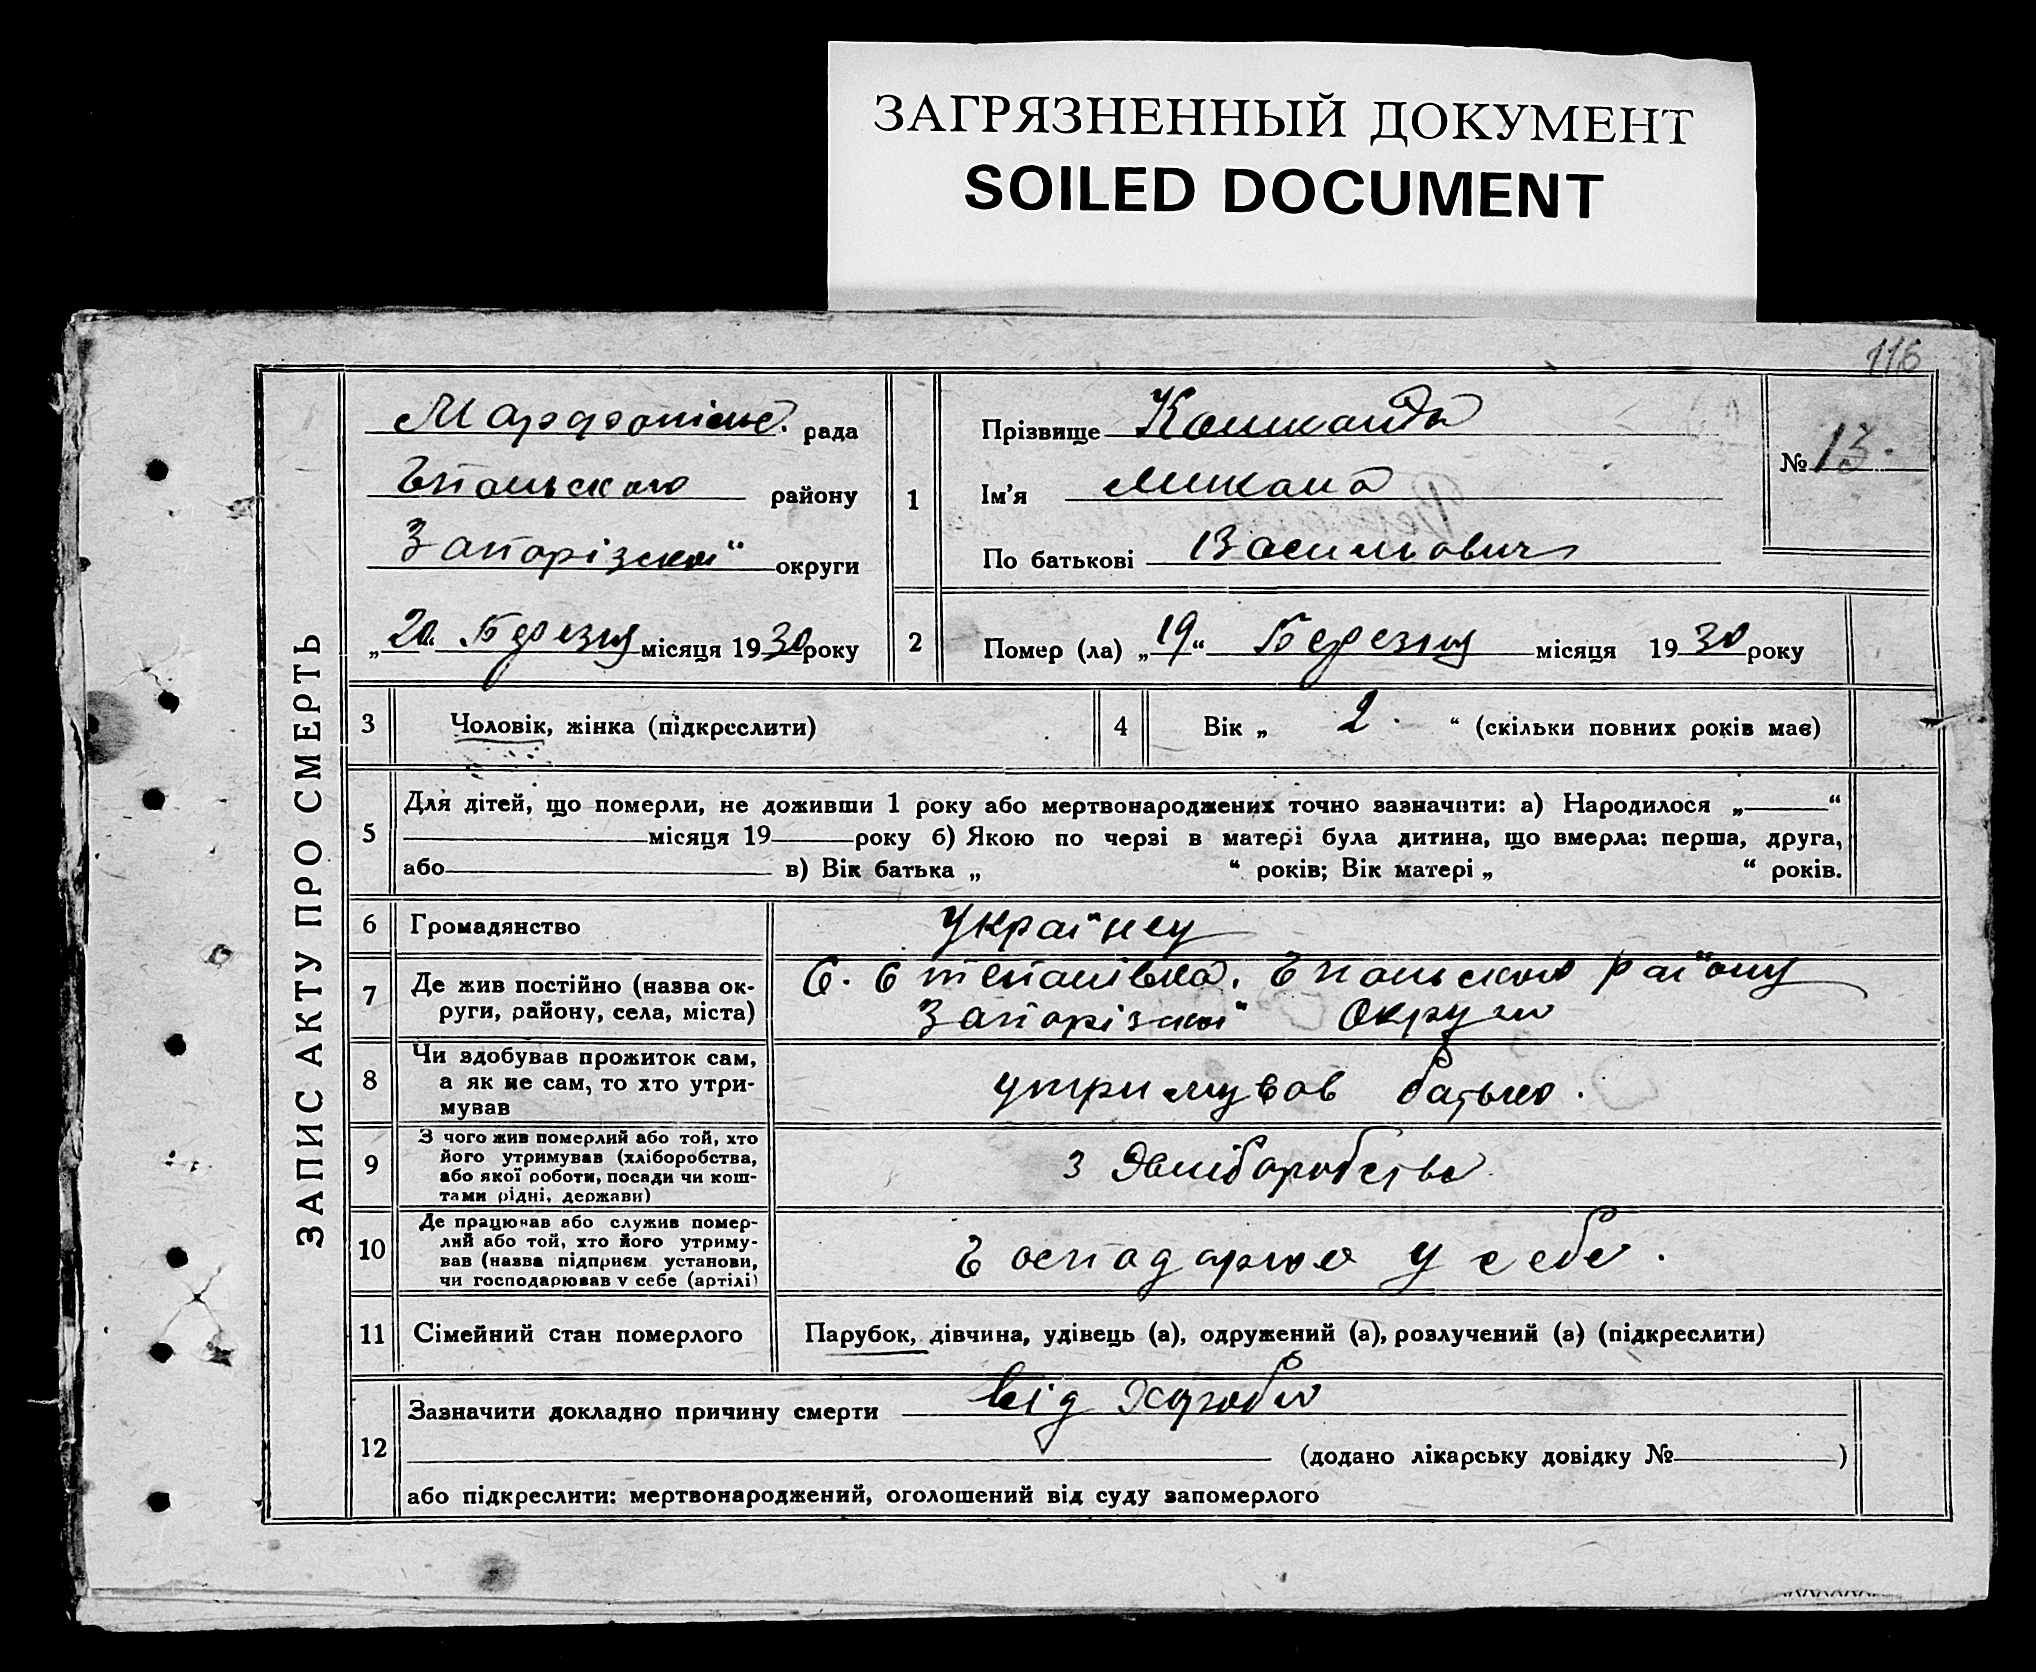 ЗАГРЯЗНЕННЫЙ ДОКУМЕНТ
SOILED DOCUMENT
116
ЗАПИС АКТУ ПРО СМЕРТЬ
Марфопільс. рада
району
Запорізької округи
„20“ Березня місяця 1930 року
1
Прізвище
Ім’я Микола
По батькові Васильович
№ 13.
2
Помер (ла) „19“ Березня місяця 1930 року
3
Чоловік, жінка (підкреслити)
4
Вік „ 2. “ (скільки повних років має)
5
Для дітей, що померли, не доживши 1 року або мертвонароджених точно зазначити: а) Народилося „ “
місяця 19 року б) Якою по черзі в матері була дитина, що вмерла: перша, друга,
або в) Вік батька „ “ років; Вік матері „ “ років.
6
Громадянство
7
Де жив постійно (назва ок-
руги, району, села, міста)
С. Степанівка, району
Запорізької Округи
8
Чи здобував прожиток сам,
а як не сам, то хто утри-
мував
утримував батько.
9
З чого жив померлий або той, хто
його утримував (хліборобства,
або якої роботи, посади чи кош-
тами рідні, держави)
з Хліборобства
10
Де працював або служив помер-
лий або той, хто його утриму-
вав (назва підприєм установи,
чи господарював у себе (артілі)
у себе.
11
Сімейний стан померлого
Парубок, дівчина, удівець (а), одружений (а), розлучений (а) (підкреслити)
12
Зазначити докладно причину смерти від Хороби
(додано лікарську довідку № )
або підкреслити: мертвонароджений, оголошений від суду запомерлого